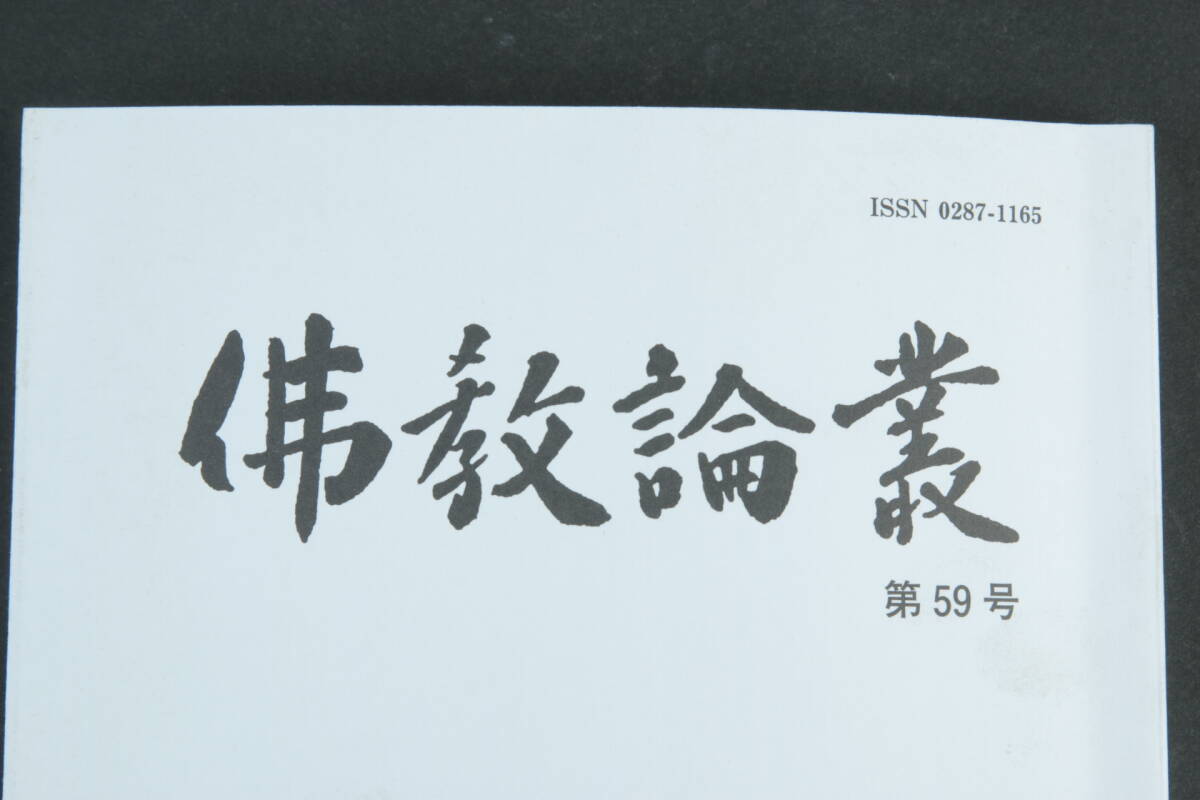 ISSN 0287-1165
佛教論叢
第59号